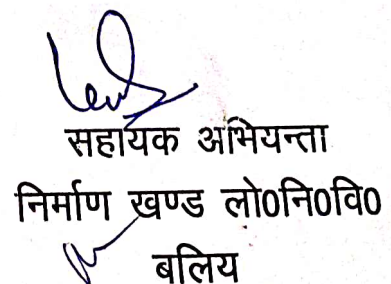 सहायक अभियन्ता
निर्माण खण्ड लो0नि0वि0
बलिय